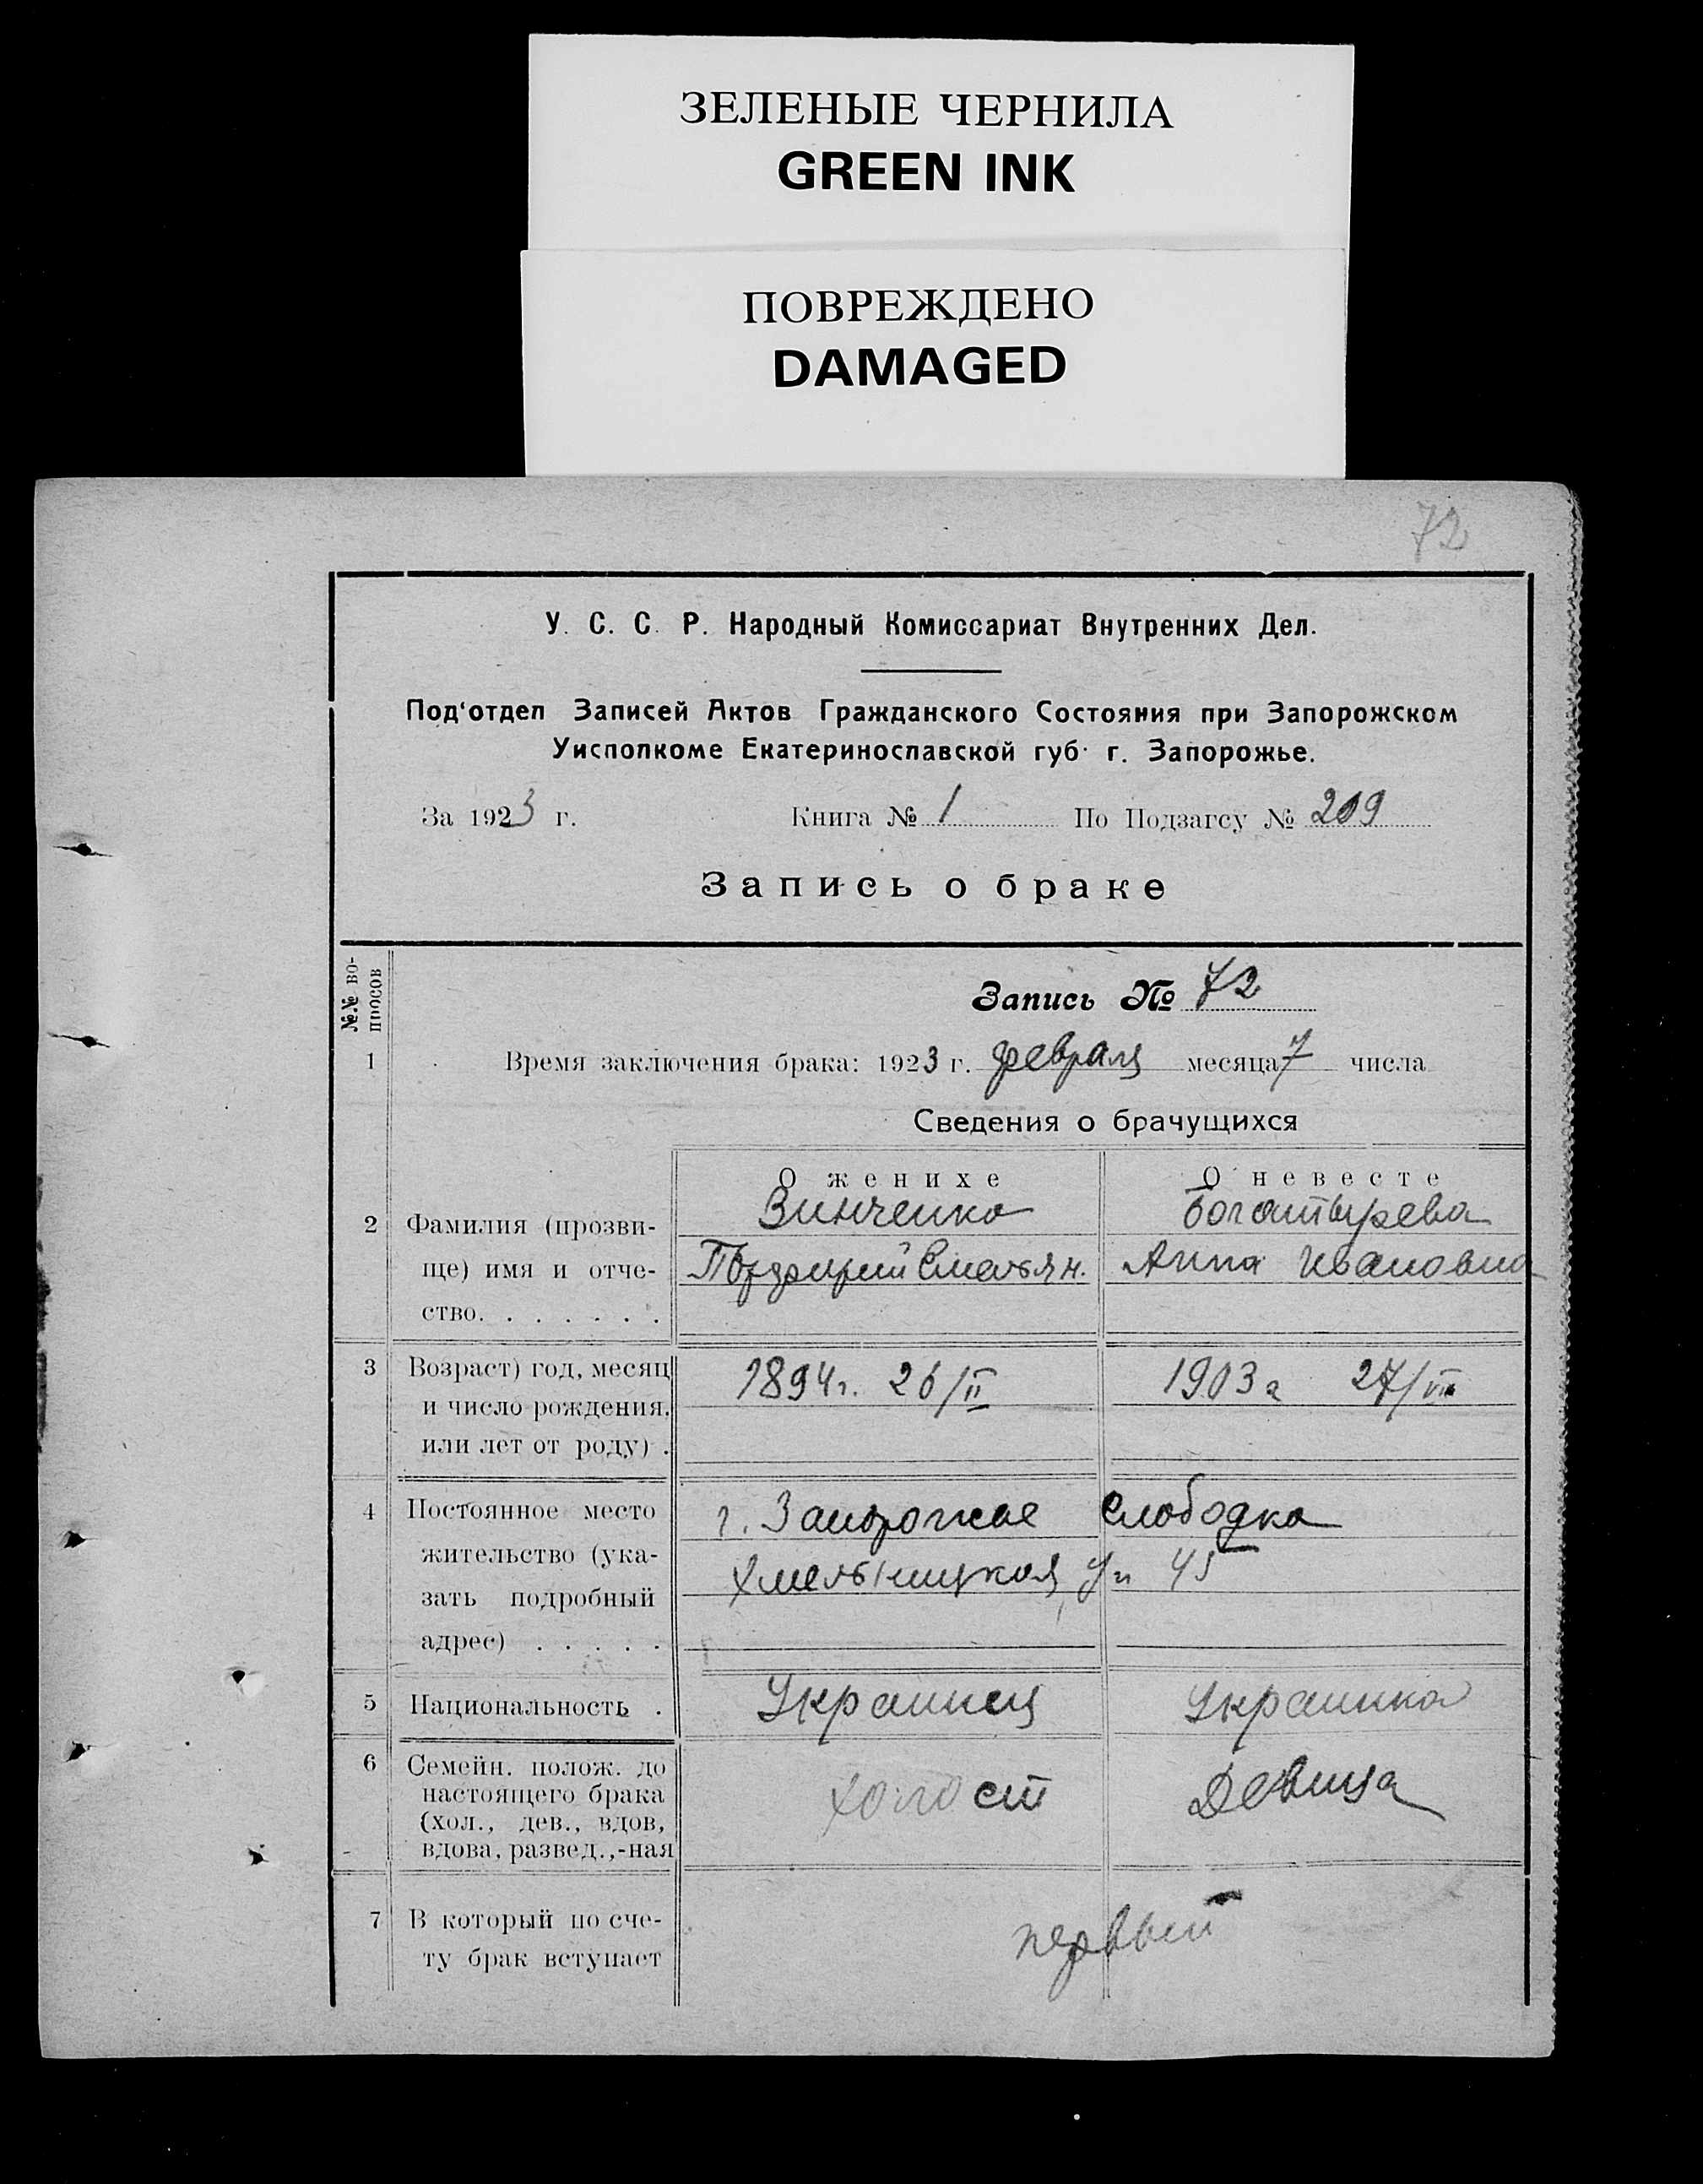 ЗЕЛЕНЫЕ ЧЕРНИЛА
GREEN INK
ПОВРЕЖДЕНО
DAMAGED
72
У. С. С. Р. Народный Комиссариат Внутренних Дел.
Под'отдел Записей Актов Гражданского Состояния при Запорожском
Уисполкоме Екатеринославской губ. г. Запорожье.
За 1923 г. Книга № 1 По Подзагсу № 209
Запись о браке
№№ во-
просов
Запись № 72
1 Время заключения брака: 1923 г. февраля месяца 7 числа
Сведения о брачущихся
О женихе О невесте
Винченко Богатырева
2 Фамилия (прозви-
ще) имя и отче- Емельян. Анна Ивановна
ство. . . . . . .
3 Возраст) год, месяц 1894 г. 26/II 1903 г 27/VIII
и число рождения,
или лет от роду) .
4 Постоянное место г. Запорожье Слободка
жительство (ука-
зать подробный Хмельницкая, ул 45
адрес) . . . . .
5 Национальность . Украинец Украинка
6 Семейн. полож. до
настоящего брака холост Девица
(хол., дев., вдов,
вдова, развед.,-ная
7 В который по сче- первый
ту брак вступает